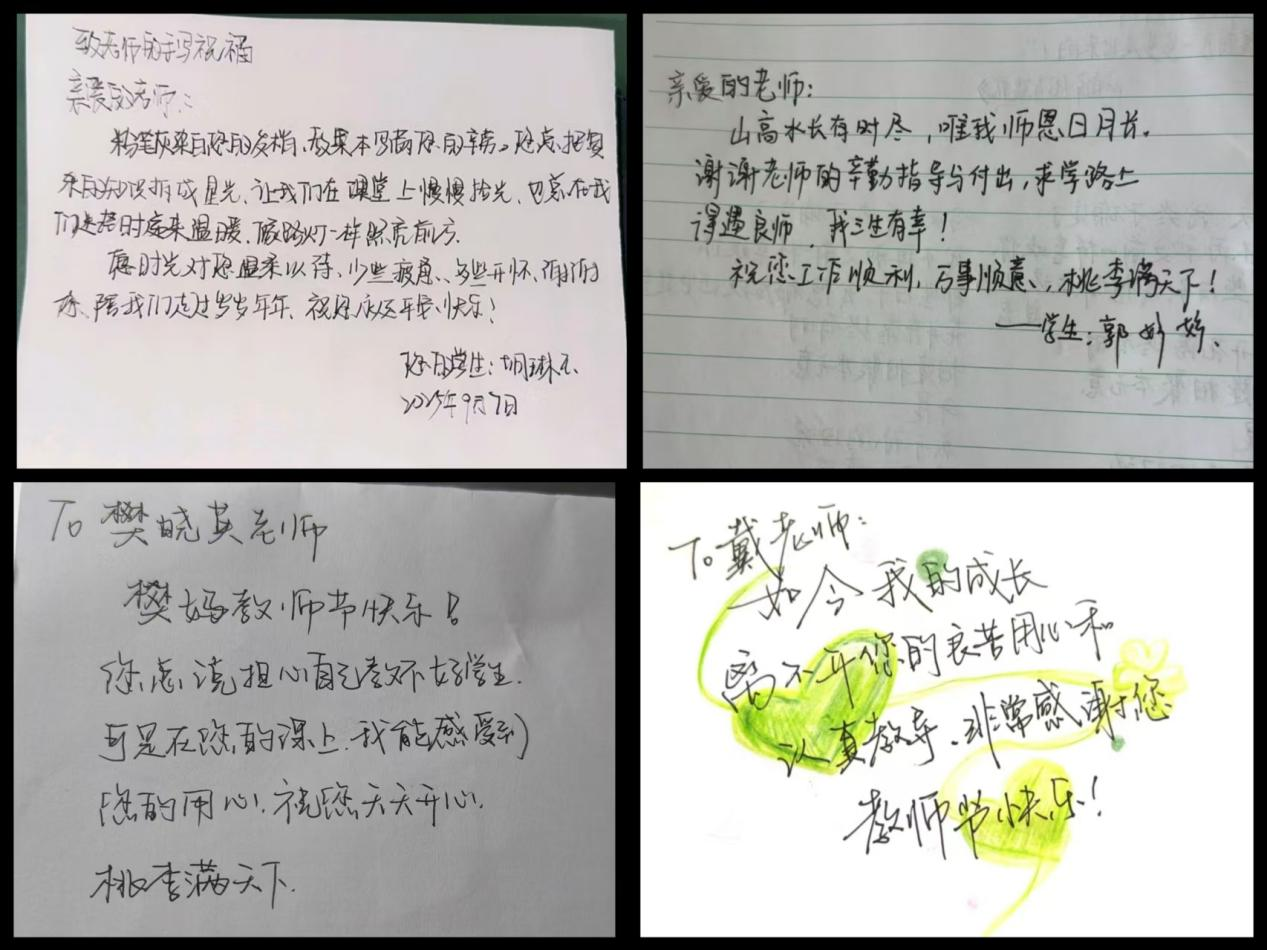 致老师的手写祝福
亲爱的老师：
粉笔灰染白您的发梢，教案本写满您的辛劳。您总把复
杂的知识拆成星光，让我们在课堂上慢慢拾光，也总在我
们迷茫时递来温暖，像路灯一样照亮前方。
愿时光对您温柔以待，少些疲惫、多些开怀，
陪我们走过岁岁年年，祝您永远平安快乐！
您的学生：胡琳
2025年9月7日
亲爱的老师：
山高水长有时尽，唯我师恩日月长。
谢谢老师的辛勤指导与付出，求学路上
得遇良师，我三生有幸！
祝您工作顺利，万事顺意，桃李满天下！
——学生：郭妙妙
To 樊晓英老师
樊妈教师节快乐！
您总说担心自己教不好学生，
可是在您的课上，我能感受到
您的用心，祝您天天开心，
桃李满天下.
To 戴老师：
如今我的成长
离不开您的良苦用心和
认真教导，非常感谢您
教师节快乐！